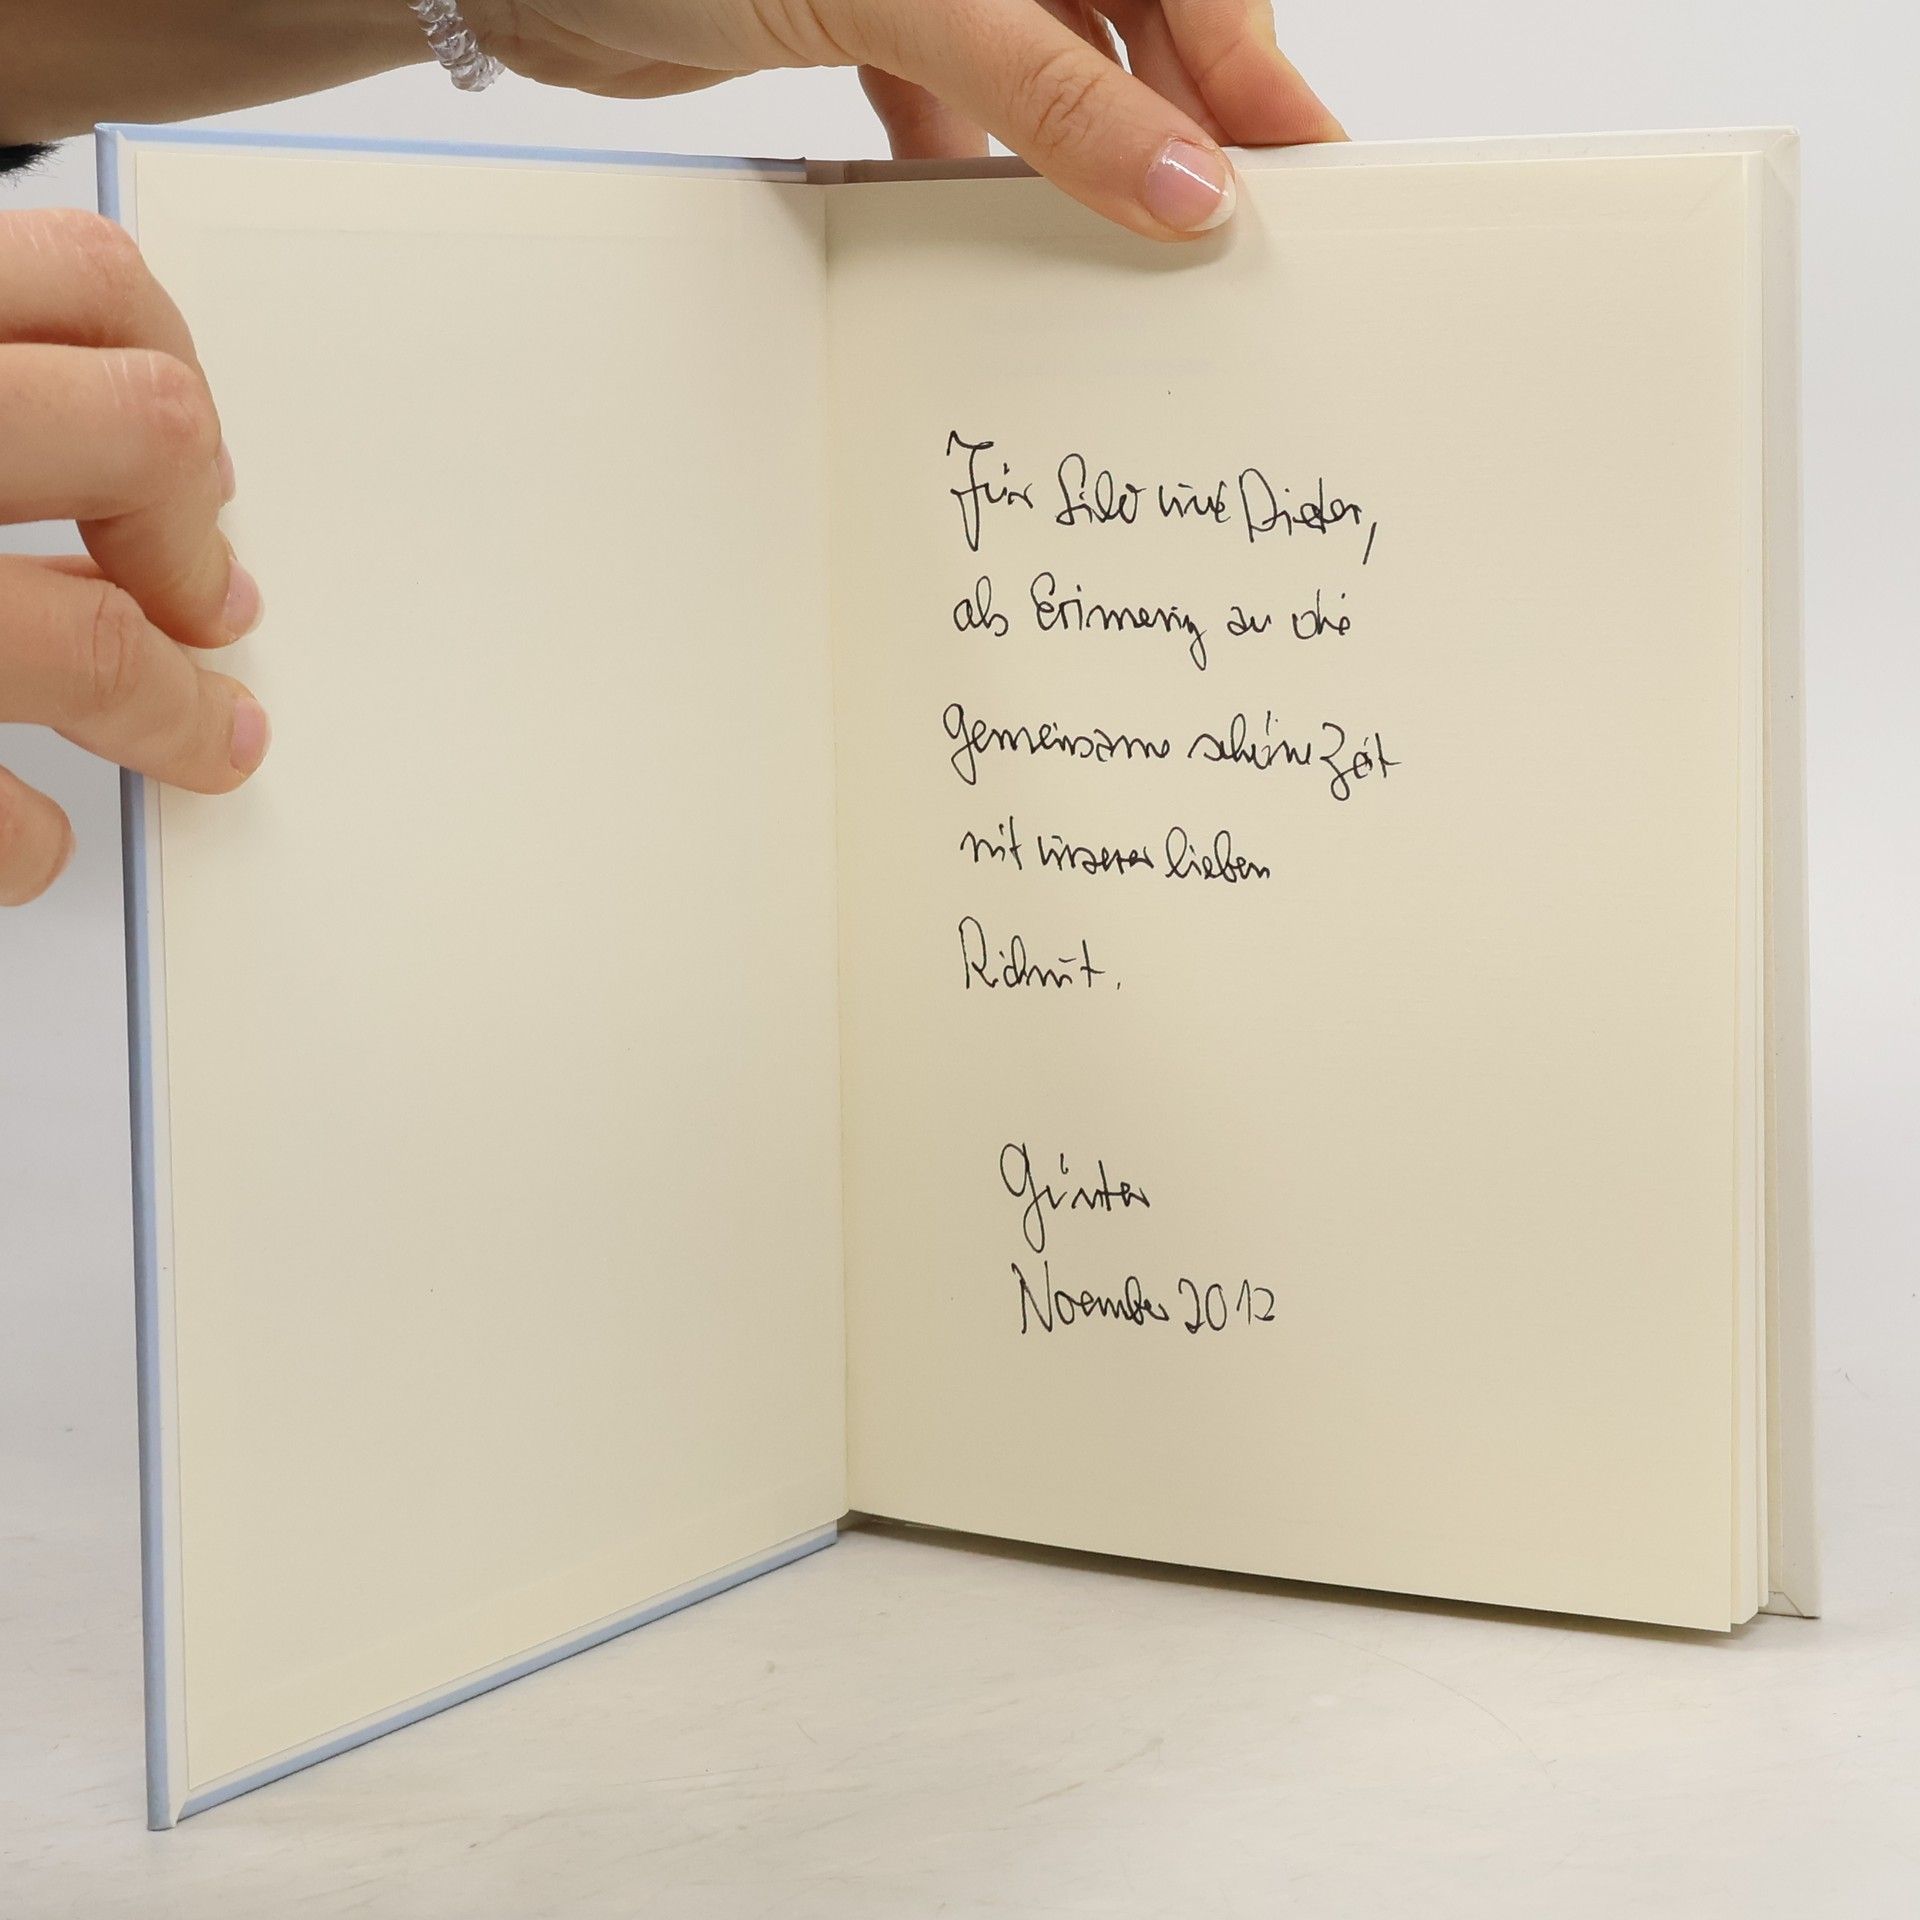 Für Silo und Dieter,
als Erinnerung an die
gemeinsame schöne Zeit
mit unserer lieben
Richmut.
Günter
November 2012